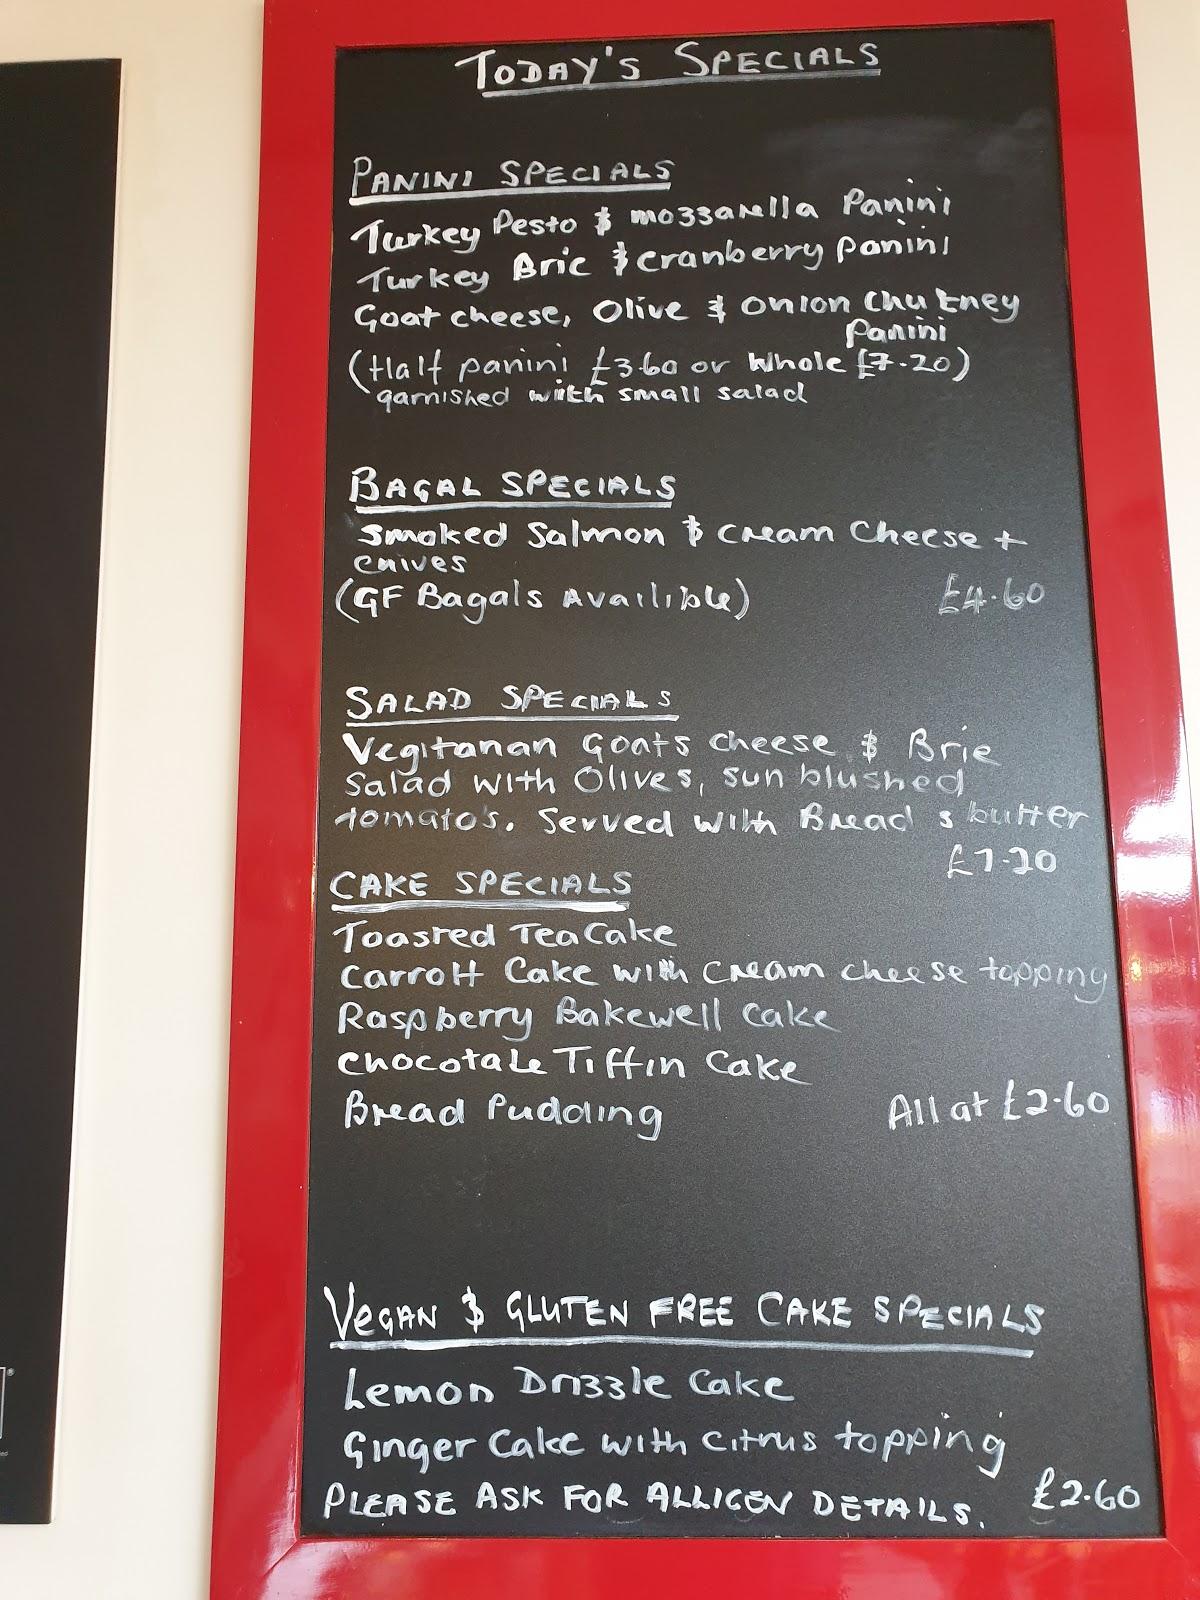 TODAY'S SPECIALS
PANINI SPECIALS
Turkey Pesto & mozzarella Panini
Turkey Brie & cranberry panini
Goat cheese, Olive & onion chutney
Panini
(Half panini £3.60 or whole £7.20)
garnished with small salad
BAGAL SPECIALS
Smoked Salmon & cream cheese +
chives
(GF Bagals Availible) £4.60
SALAD SPECIALS
Vegitarian Goats cheese & Brie
salad with Olives, sun blushed
tomato's. Served with Bread & butter
£7.20
CAKE SPECIALS
Toasted TeaCake
Carrott Cake with cream cheese topping
Raspberry Bakewell Cake
Chocotale Tiffin Cake
Bread Pudding All at £2.60
VEGAN & GLUTEN FREE CAKE SPECIALS
Lemon Drizzle Cake
Ginger Cake with citrus topping
PLEASE ASK FOR ALLIGEN DETAILS. £2.60